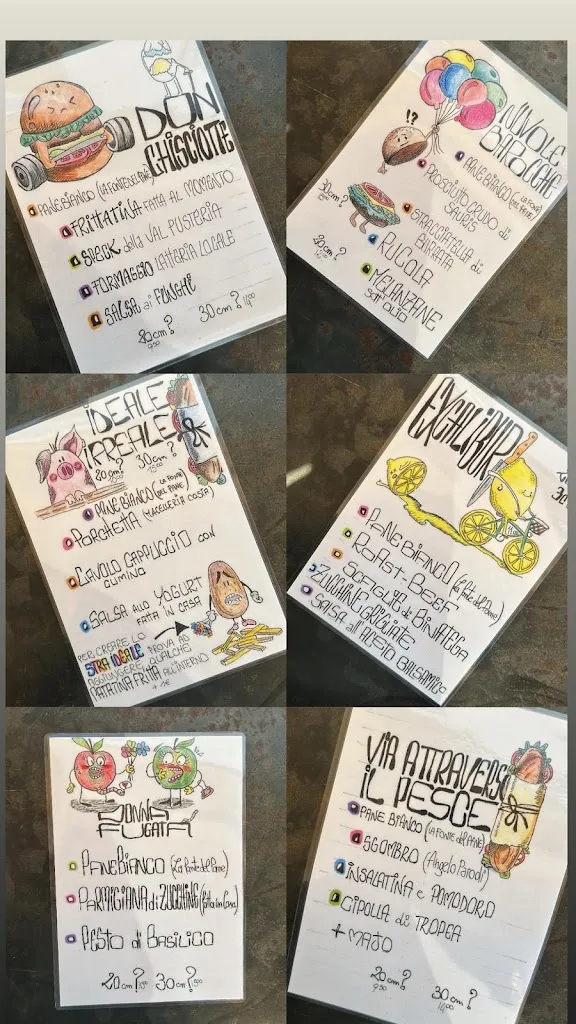 DON
CHISCIOTE
PANE BIANCO (LA FONTE DEL PANE)
FRITTATINA FATTA AL MOMENTO
SPECK della VAL PUSTERIA
FORMAGGIO LATTERIA LOCALE
SALSA ai FUNGHI
20cm? 30cm?
NUVOLE
BAROCCHE
!?
PANE BIANCO (LA FONTE DEL PANE)
PROSCIUTTO CRUDO di
SAURIS
STRACCIATELLA di
BURRATA
RUCOLA
MELANZANE
SOTT'OLIO
30cm?
20cm?
IDEALE
IRREALE
20cm? 30cm?
PANE BIANCO (LA FONTE DEL PANE)
PORCHETTA (MACELLERIA COSTA)
CAVOLO CAPPUCCIO CON
CUMINO
SALSA allo YOGURT
FATTA IN CASA
PER CREARE LO
STRA IDEALE PROVA AD
AGGIUNGERE QUALCHE
PATATINA FRITTA ALL'INTERNO
+ 1€
EXCALIBUR
PANE BIANCO (La Fonte del Pane)
ROAST-BEEF
SFOGLIE di BUFALA
ZUCCHINE GRIGLIATE
SALSA all'ACETO BALSAMICO
DONNA
FUGATA
PANE BIANCO (La Fonte del Pane)
PARMIGIANA di ZUCCHINE (Fatta in Casa)
PESTO di BASILICO
20cm? 30cm?
VIA ATTRAVERSO
IL PESCE
PANE BIANCO (LA FONTE del PANE)
SGOMBRO (Angelo Parodi)
INSALATINA e POMODORO
CIPOLLA di TROPEA
+ MAJO
20cm? 30cm?